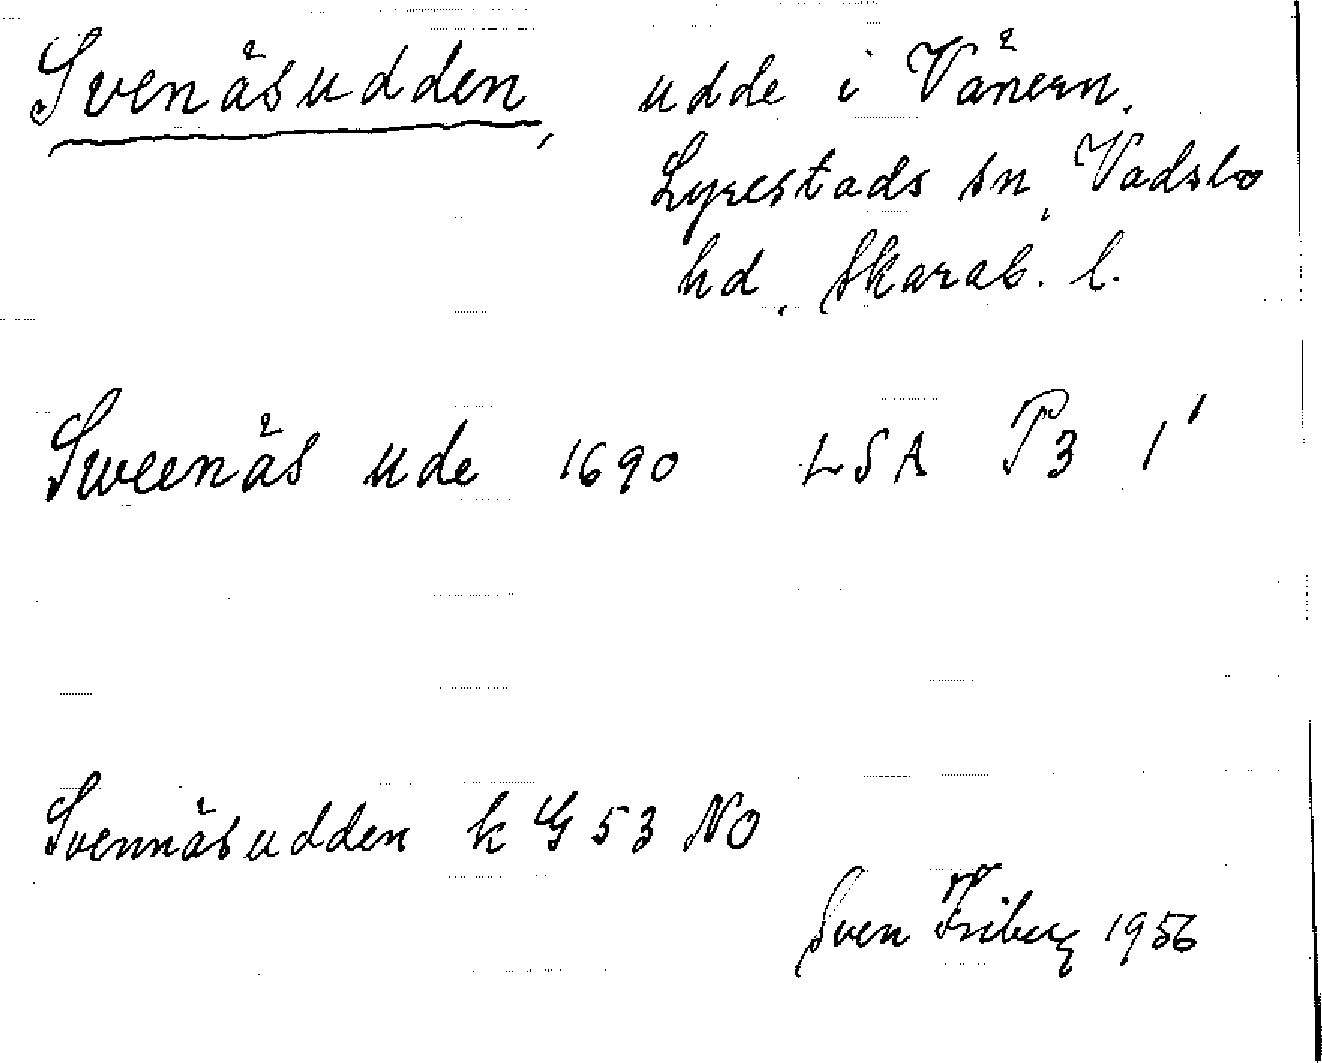 Svenäsudden, udde i Vänern,
Lyrestads sn, Vadsbo
hd, Skarab. l.
Sweenäs ude 1690 LSA P3 1'
Svennäsudden k G 53 NO
Sven Friberg 1956